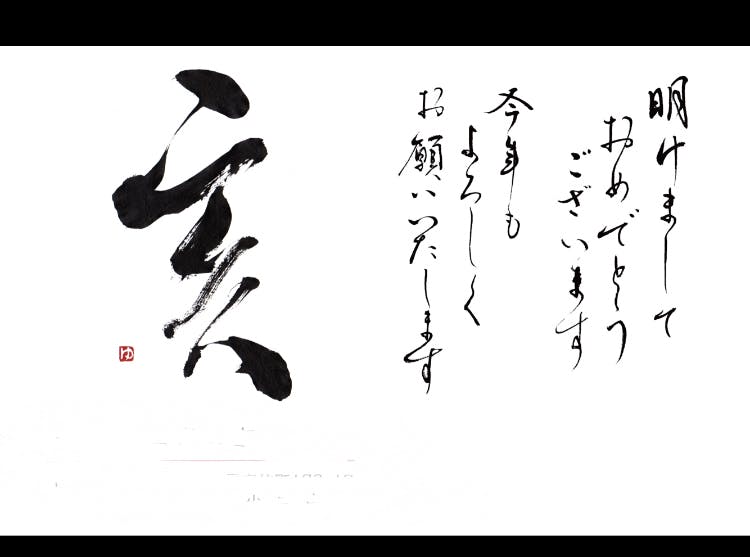 明けまして
おめでとう
ございます
今年も
よろしく
お願いいたします
亥
ゆ